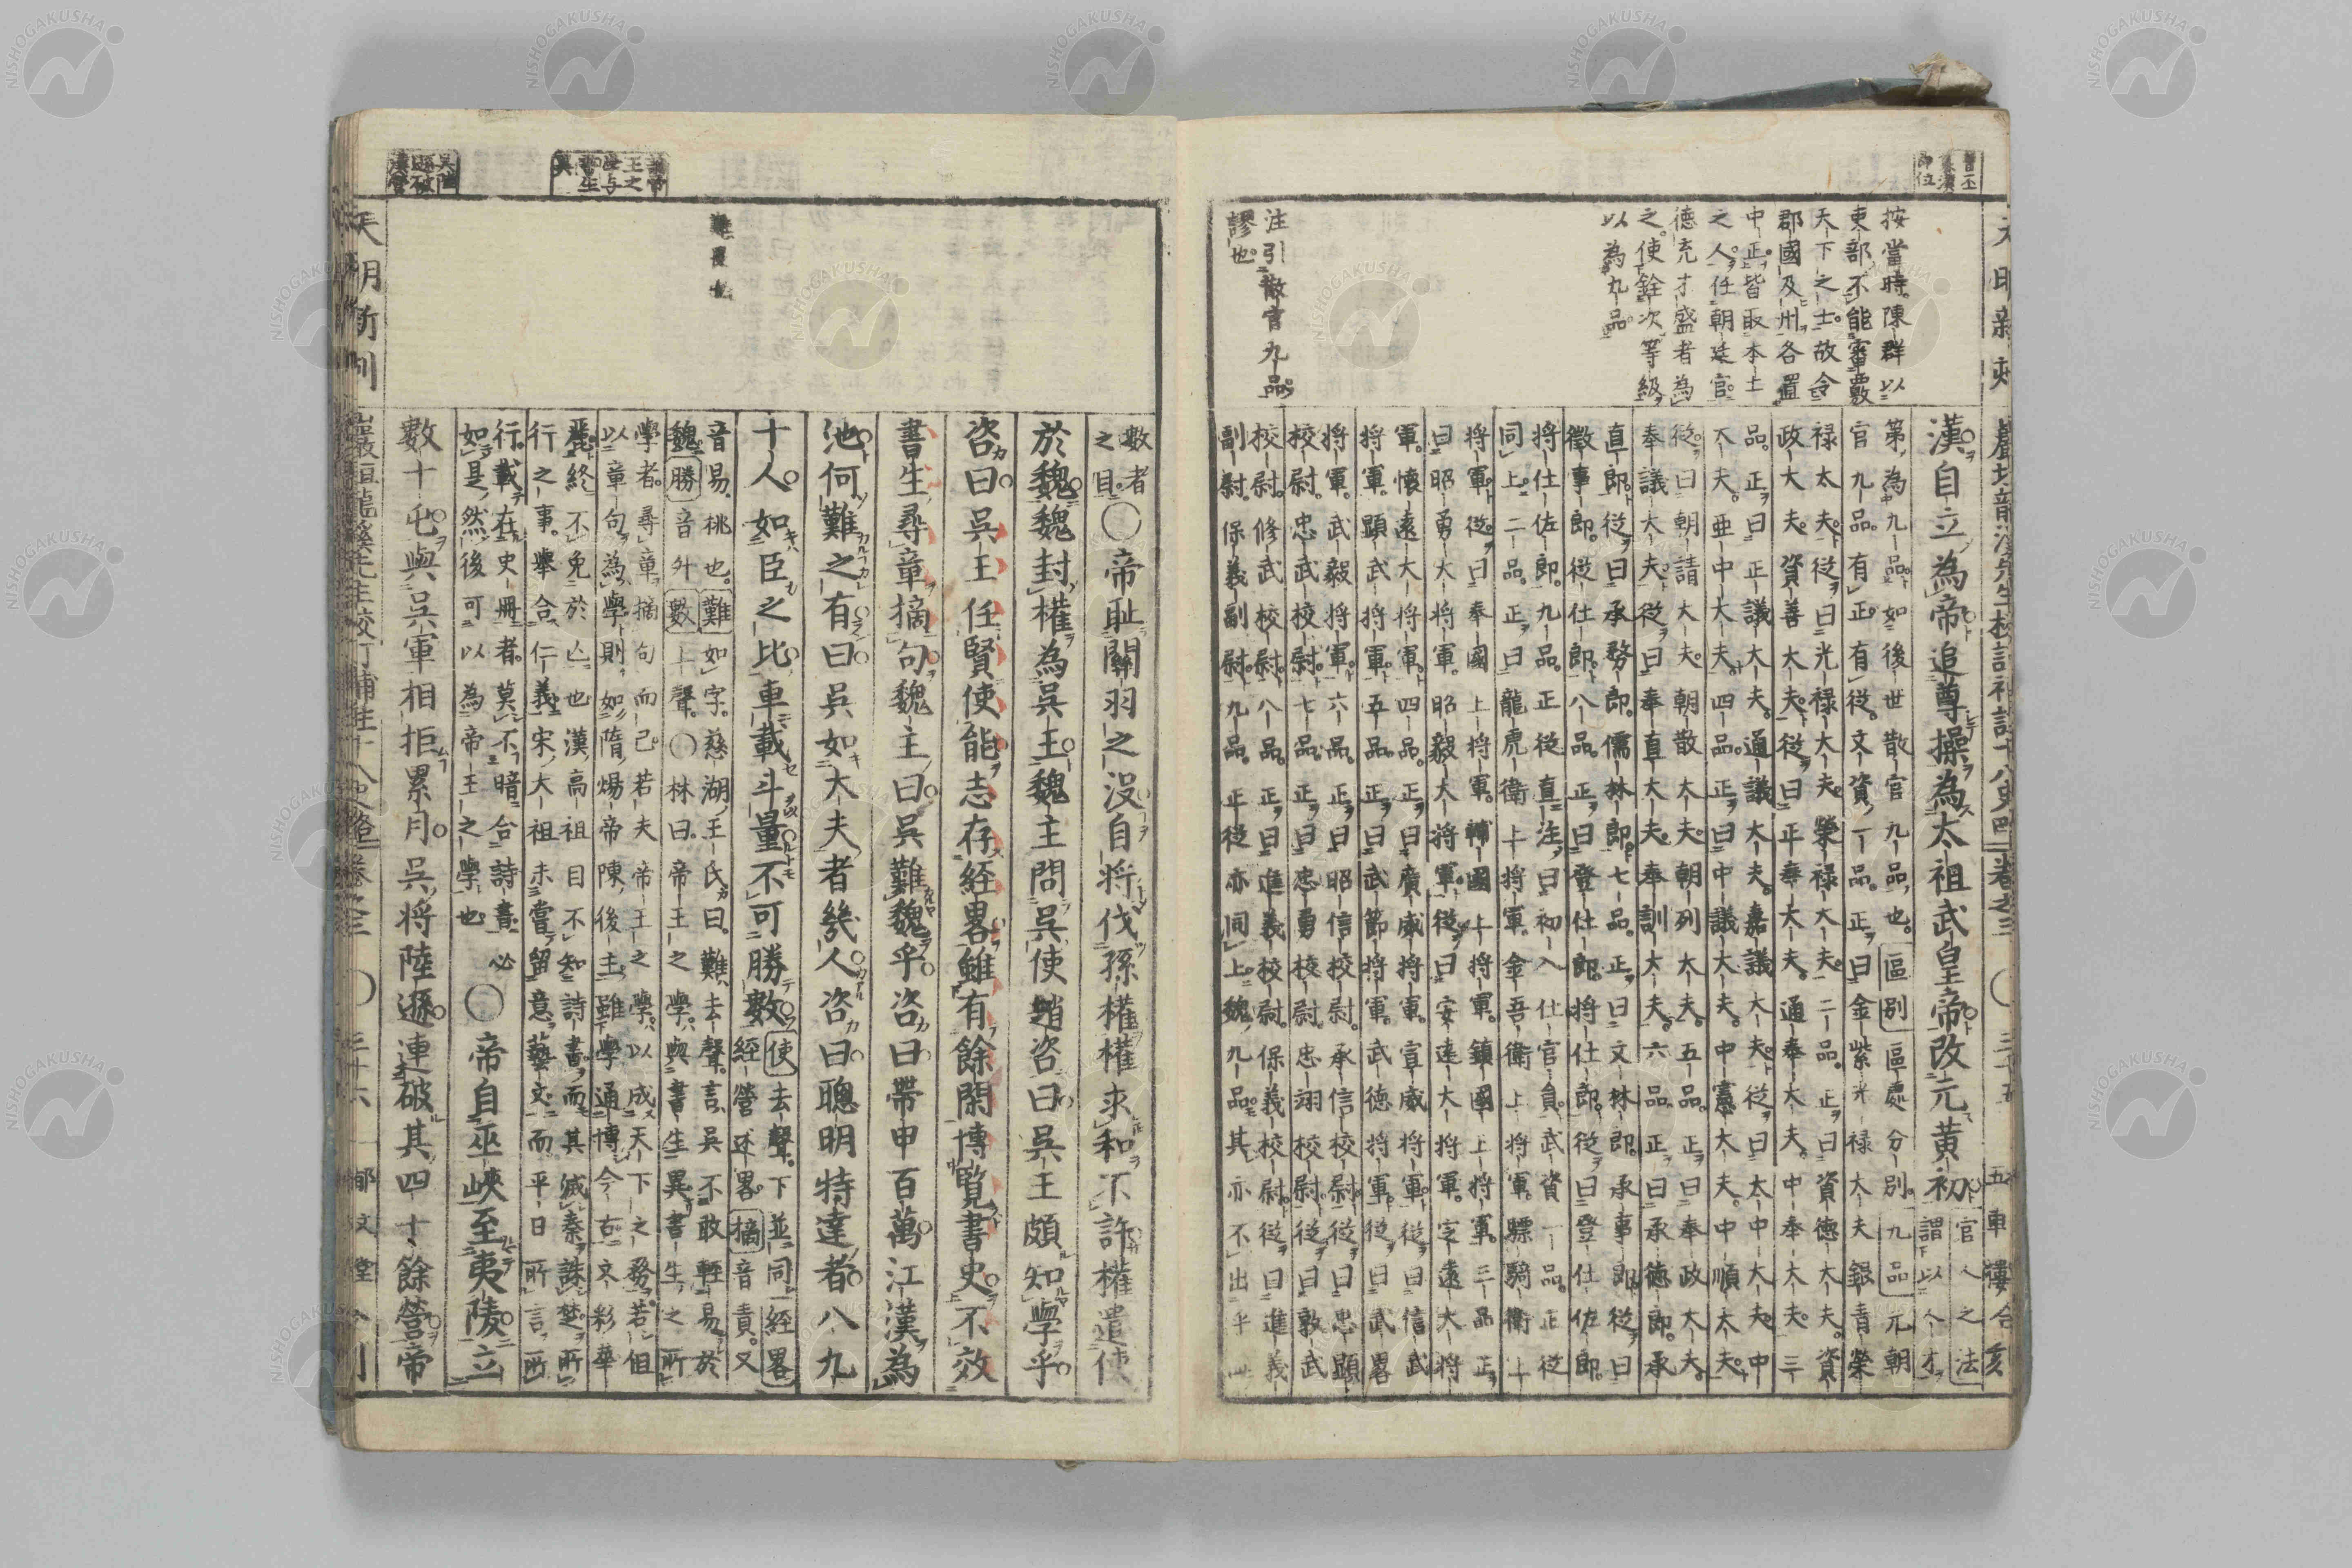 漢自立為帝追尊操為太祖武皇帝改元黃初
官人之法
謂以人才
第為九品如後世散官九品也區別區處分別九品元朝
官九品有正有從文資一品正曰金紫光禄大夫銀青榮
禄大夫從曰光禄大夫榮禄大夫二品正曰資德大夫資
政大夫資善大夫從曰正奉大夫通奉大夫中奉大夫三
品正曰正議大夫通議大夫嘉議大夫從曰太中大夫中
大夫亜中大夫四品正曰中議大夫中憲大夫中順大夫
從曰朝請大夫朝散大夫朝列大夫五品正曰奉政大夫
奉議大夫從曰奉直大夫奉訓大夫六品正曰承德郎承
直郎從曰承務郎儒林郎七品正曰文林郎承事郎從曰
徵事郎從仕郎八品正曰登仕郎將仕郎從曰登仕佐郎
將仕佐郎九品正從直注曰初入仕官員武資一品正從
同上二品正曰龍虎衛上將軍金吾衛上將軍驃騎衛上
將軍從曰奉國上將軍輔國上將軍鎮國上將軍三品正
曰昭勇大將軍昭毅大將軍從曰安遠大將軍定遠大將
軍懷遠大將軍四品正曰廣威將軍宣威將軍從曰信武
將軍顯武將軍五品正曰武節將軍武德將軍從曰武畧
將軍武毅將軍六品正曰昭信校尉承信校尉從曰忠顯
校尉忠武校尉七品正曰忠勇校尉忠翊校尉從曰敦武
校尉修武校尉八品正曰進義校尉保義校尉從曰進義
副尉保義副尉九品正從亦同上魏九品其亦不出乎此
按當時陳群以
吏部不能審覈
天下之士故令
郡國及州各置
中正皆取本土
之人任朝廷官
德充才盛者為
之使銓次等級
以為九品
注引散官九品
謬也
五車樓合亥
數者
之目
○帝耻關羽之没自將伐孫權權求和不許權遣使
於魏魏封權為吳王魏主問吳使趙咨曰吳王頗知學乎
咨曰吳王任賢使能志存経畧雖有餘閑博覧書史不效
書生尋章摘句魏主曰吳難魏乎咨曰帶甲百萬江漢為
池何難之有曰吳如大夫者幾人咨曰聰明特達者八九
十人如臣之比車載斗量不可勝數
使去聲下並同経畧
經營述畧摘音責又
音易挑也難如字慈湖王氏曰難去聲言吳不敢輕易於
魏勝音外數上聲○林曰帝王之學與書生異書生之所
學者尋章摘句而已若夫帝王之學以成天下之務若但
以章句為學則如隋煬帝陳後主雖學通博今古文彩華
麗終不免於亡也漢高祖目不知詩書而其滅秦誅楚所
行之事舉合仁義宋大祖未嘗留意藝文而平日所言所
行載在史冊者莫不暗合詩書必
如是然後可以為帝王之學也
○帝自巫峽至夷陵立
數十屯與吳軍相拒累月吳將陸遜連破其四十餘營帝
吳陸
遜破
漢營